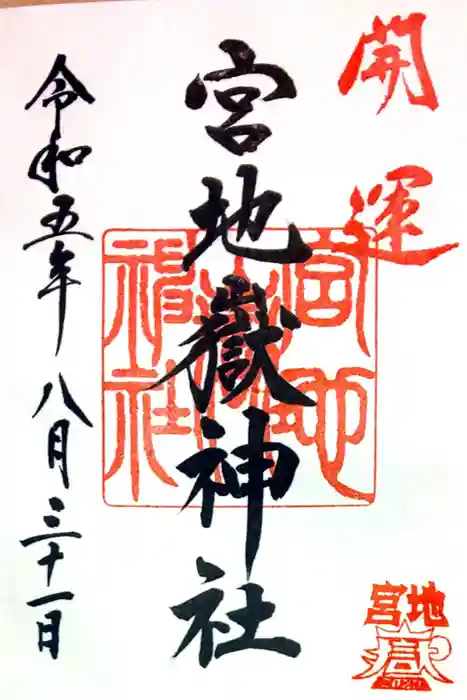 開運
宮地嶽神社
令和五年八月三十一日
宮地嶽神社
宮地
嶽